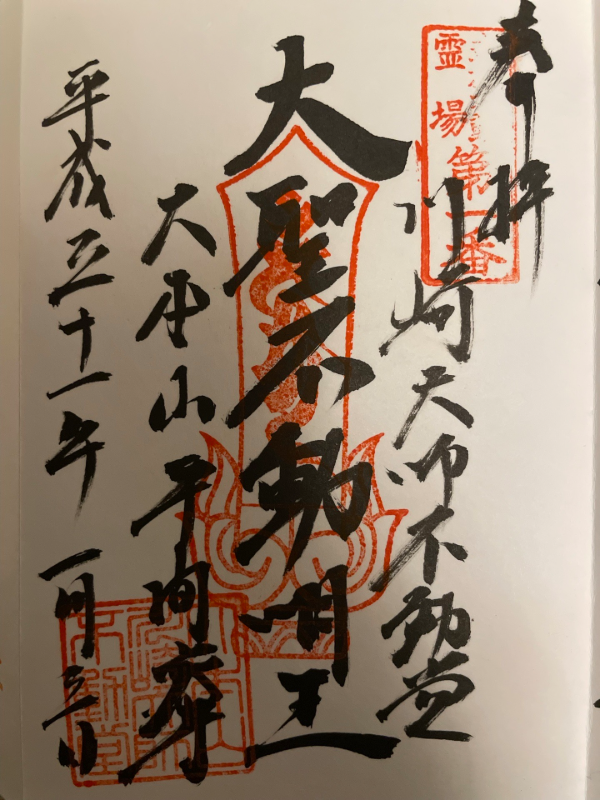 奉拝
霊場第一番
川崎大師不動堂
大聖不動明王
大本山平間寺
平成三十一年一月三日